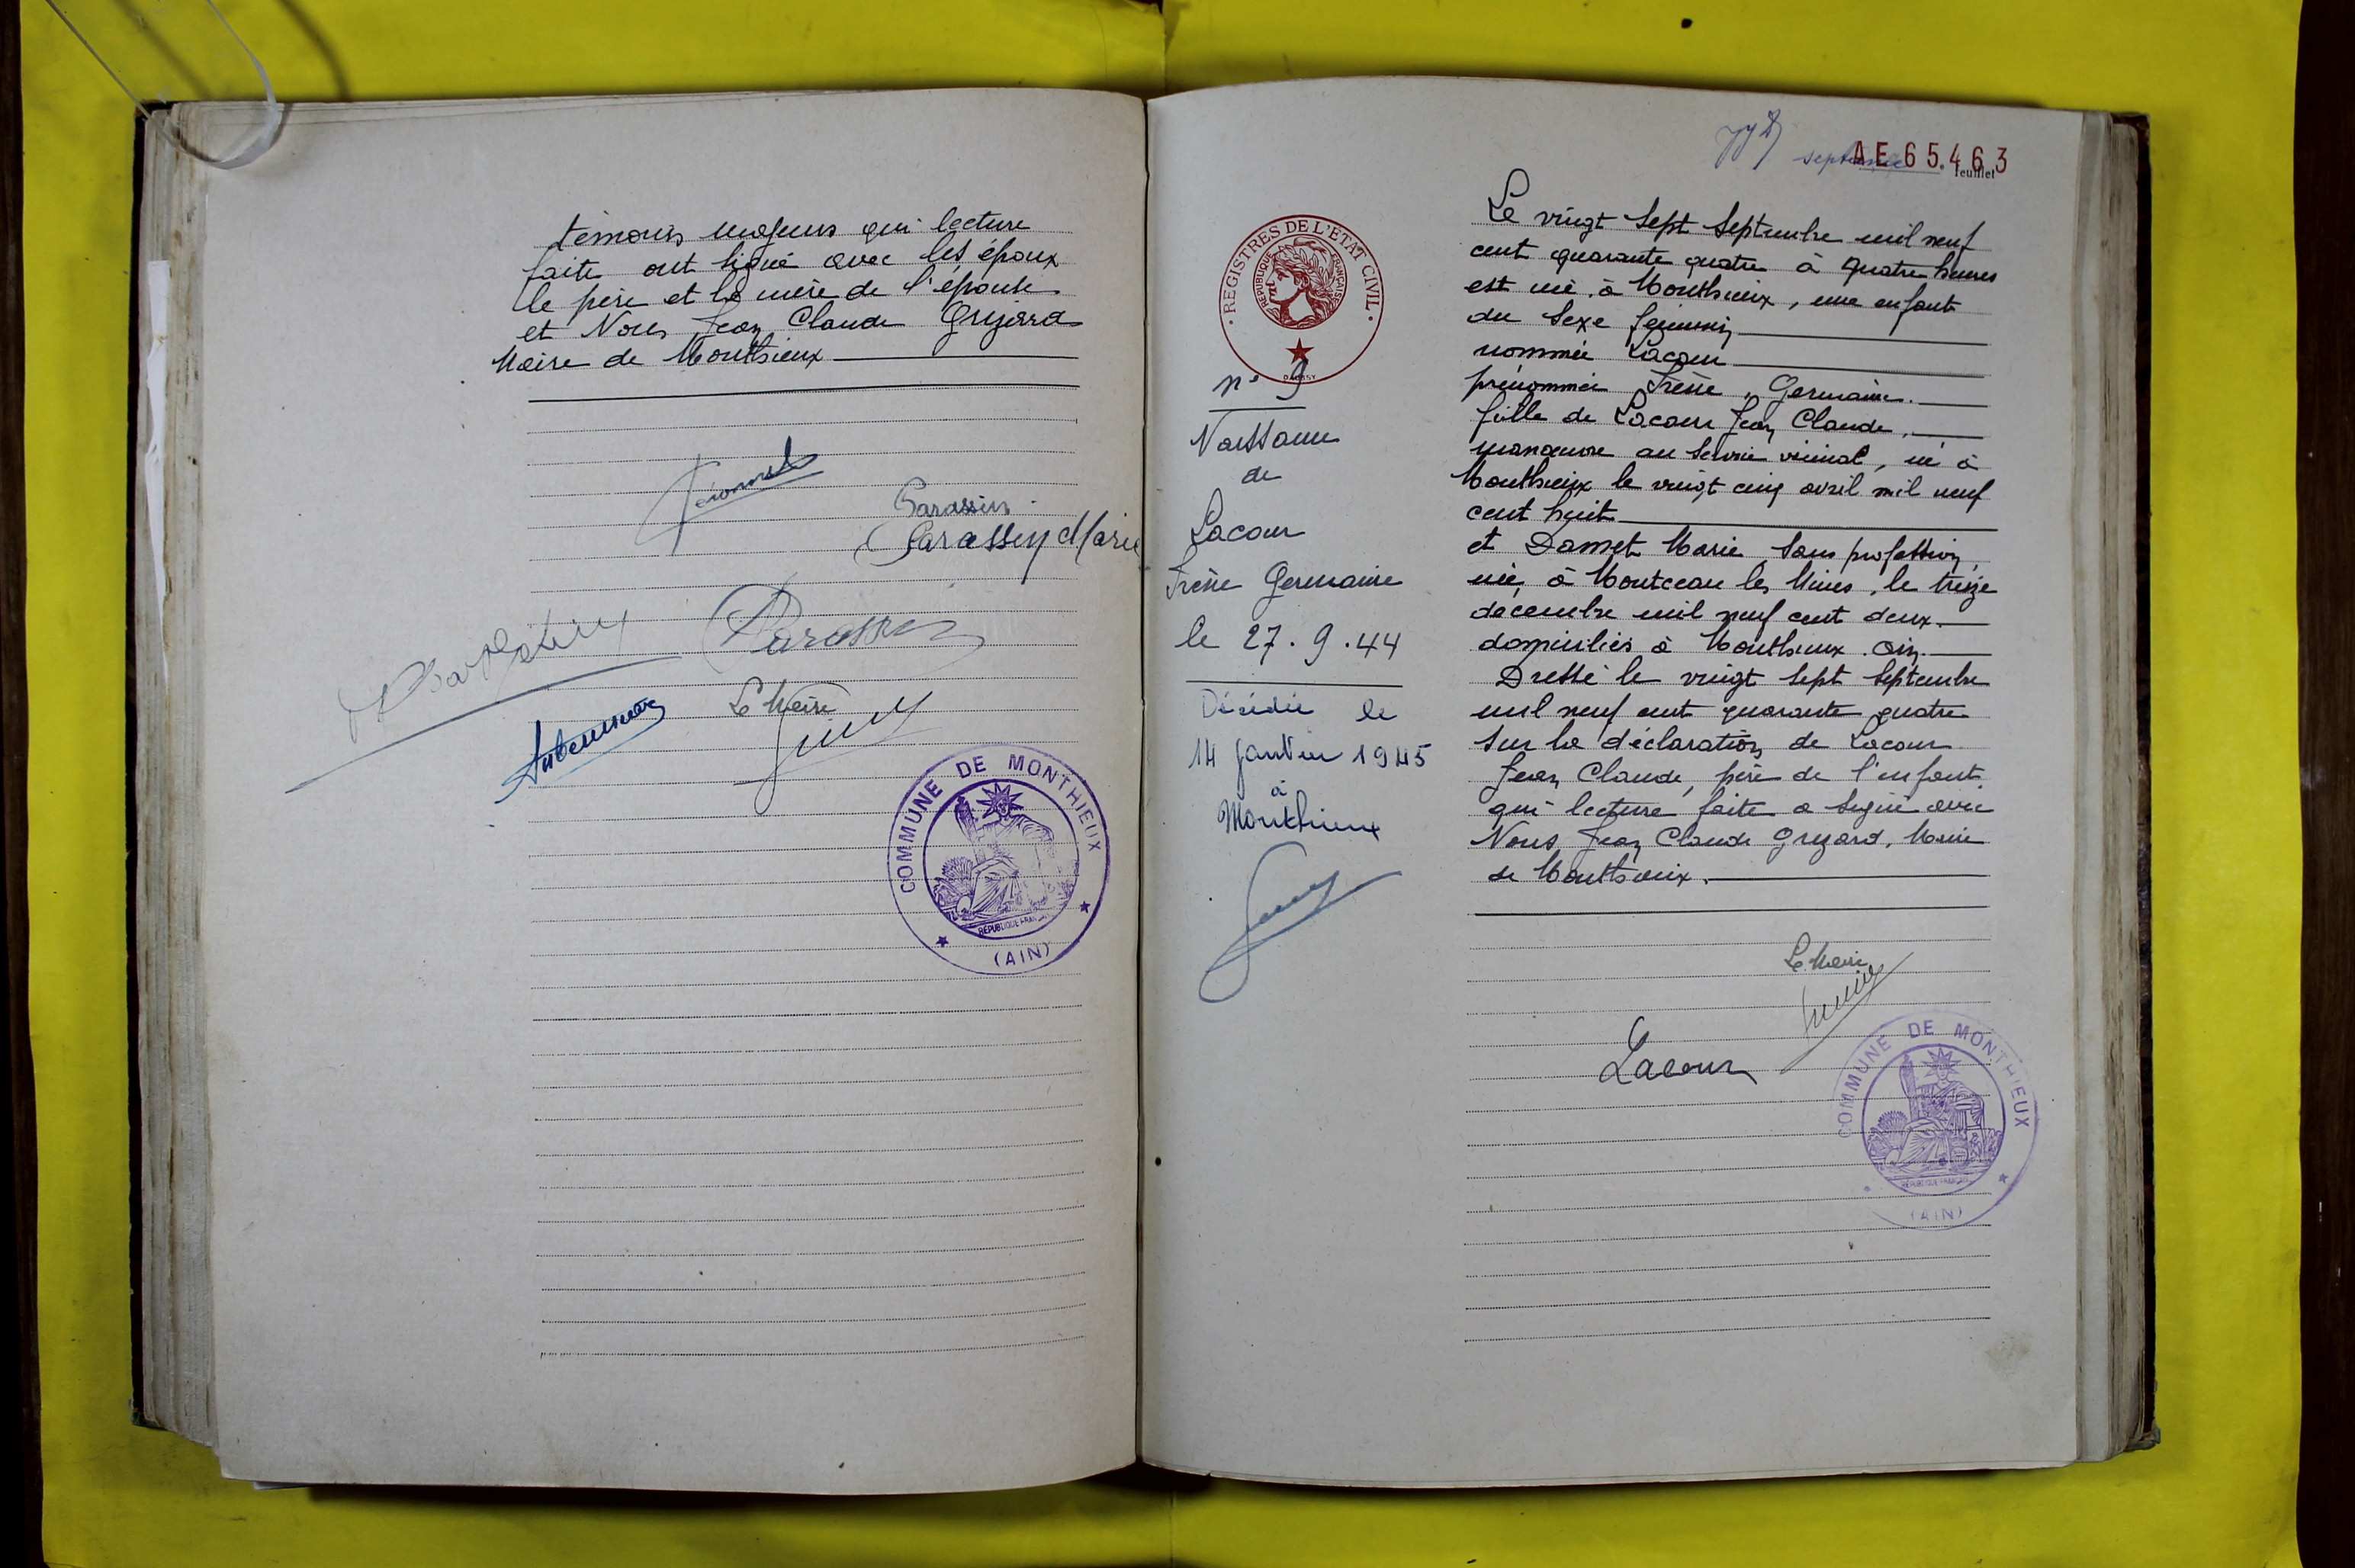 témoins majeurs qui lecture
faite ont signé avec les époux
le père et la mère de l'épouse
et Nous Jean Claude Gruard
Maire de Monthieux
Parassin
Parassin Marie
Parassin
Le Maire
COMMUNE DE MONTHIEUX
RÉPUBLIQUE FRANÇAISE
(AIN)
septième
AE 65.463
feuillet
REGISTRES DE L'ÉTAT CIVIL
RÉPUBLIQUE FRANÇAISE
n° 9
Naissance
de
Lacour
Irène Germaine
le 27.9.44
Décédée le
14 Janvier 1945
à
Monthieux
Le vingt sept Septembre mil neuf
cent quarante quatre à quatre heures
est née à Monthieux, une enfant
du sexe féminin
nommée Lacour
prénommée Irène, Germaine.
fille de Lacour Jean Claude,
manœuvre au service vicinal, né à
Monthieux le vingt cinq avril mil neuf
cent huit
et Damet Marie sans profession,
née à Montceau les Mines, le treize
decembre mil neuf cent deux.
domiciliés à Monthieux. Ain.
Dressé le vingt sept Septembre
mil neuf cent quarante quatre
sur la déclaration de Lacour
Jean Claude, père de l'enfant
qui lecture faite a signé avec
Nous Jean Claude Gruard, Maire
de Monthieux.
Le Maire
Lacour
COMMUNE DE MONTHIEUX
RÉPUBLIQUE FRANÇAISE
(AIN)